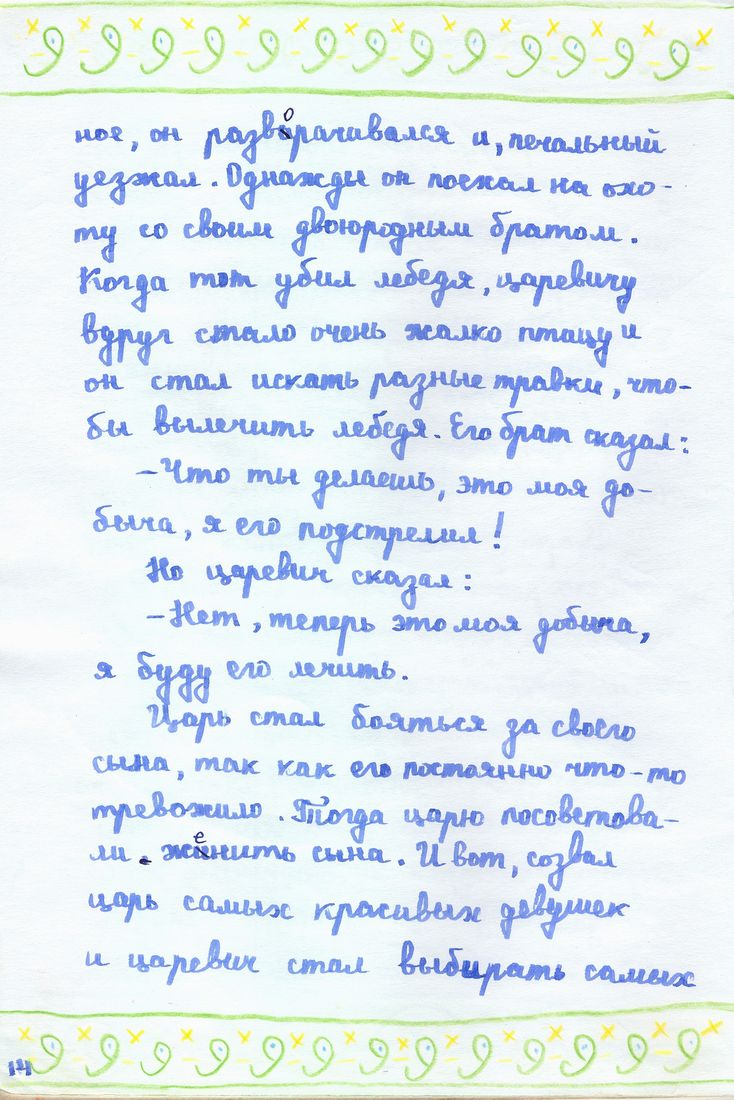 ное, он разворачивался и, печальный
уезжал. Однажды он поехал на охо-
ту со своим двоюродным братом.
Когда тот убил лебедя, царевичу
вдруг стало очень жалко птицу и
он стал искать разные травки, что-
бы вылечить лебедя. Его брат сказал:
-Что ты делаешь, это моя до-
быча, я его подстрелил!
Но царевич сказал:
-Нет, теперь это моя добыча,
я буду его лечить.
Царь стал бояться за своего
сына, так как его постоянно что-то
тревожило. Тогда царю посоветова-
ли женить сына. И вот, созвал
царь самых красивых девушек
и царевич стал выбирать самых
14